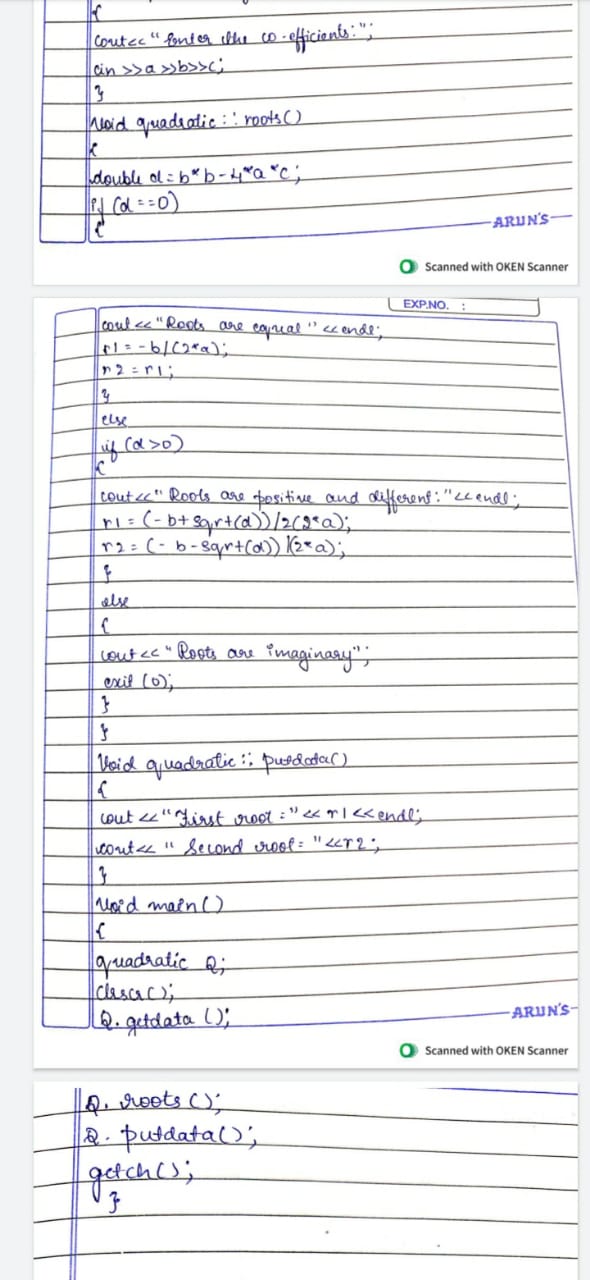 {
cout<<"Enter the co-efficients:";
cin >>a >>b>>c;
}
Void quadratic :: roots()
{
double d = b*b-4*a*c;
if (d==0)
{
ARUN'S
Scanned with OKEN Scanner
EXP.NO. :
cout << "Roots are equal" << endl;
r1 = -b/(2*a);
r2 = r1;
}
else
if (d>0)
{
cout<<"Roots are positive and different:"<<endl;
r1 = (-b+sqrt(d))/2(2*a);
r2 = (-b-sqrt(d))/(2*a);
}
else
{
cout<<"Roots are imaginary";
exit (0);
}
}
Void quadratic :: putdata()
{
cout << "First root =" << r1 << endl;
cout<< "Second root= "<<r2;
}
Void main()
{
quadratic Q;
clrscr();
Q. getdata ();
ARUN'S
Scanned with OKEN Scanner
Q. roots ();
Q. putdata();
getch();
}